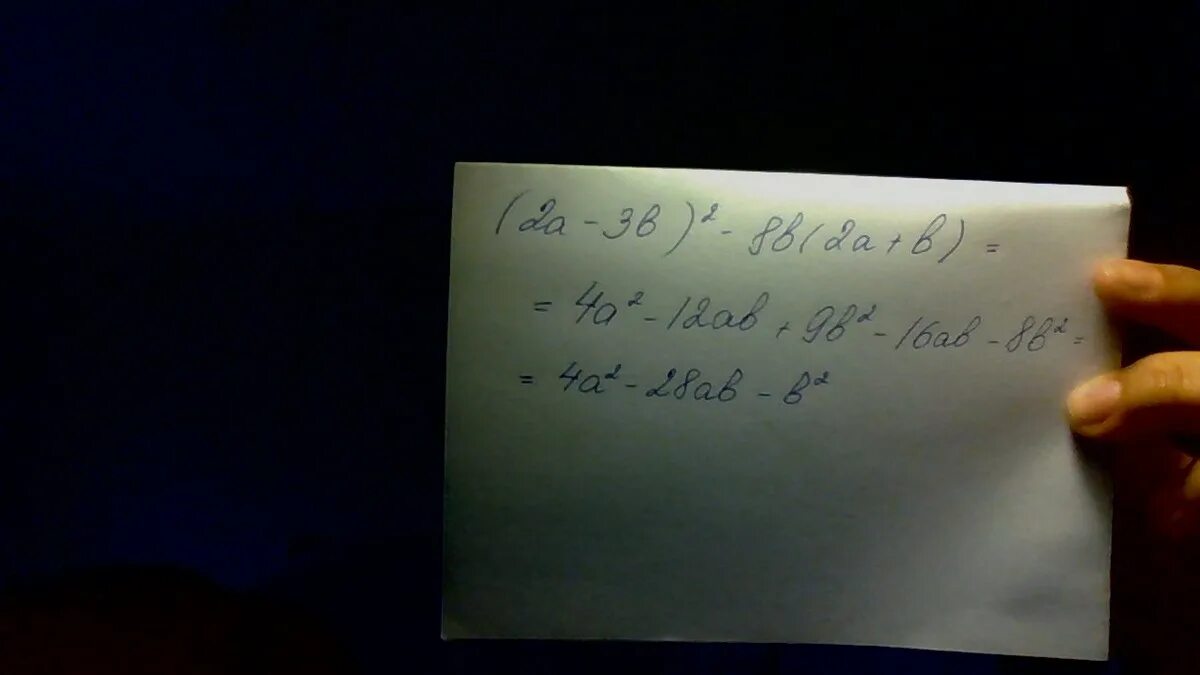 (2a - 3b)² - 8b(2a + b) =
= 4a² - 12ab + 9b² - 16ab - 8b² =
= 4a² - 28ab - b²